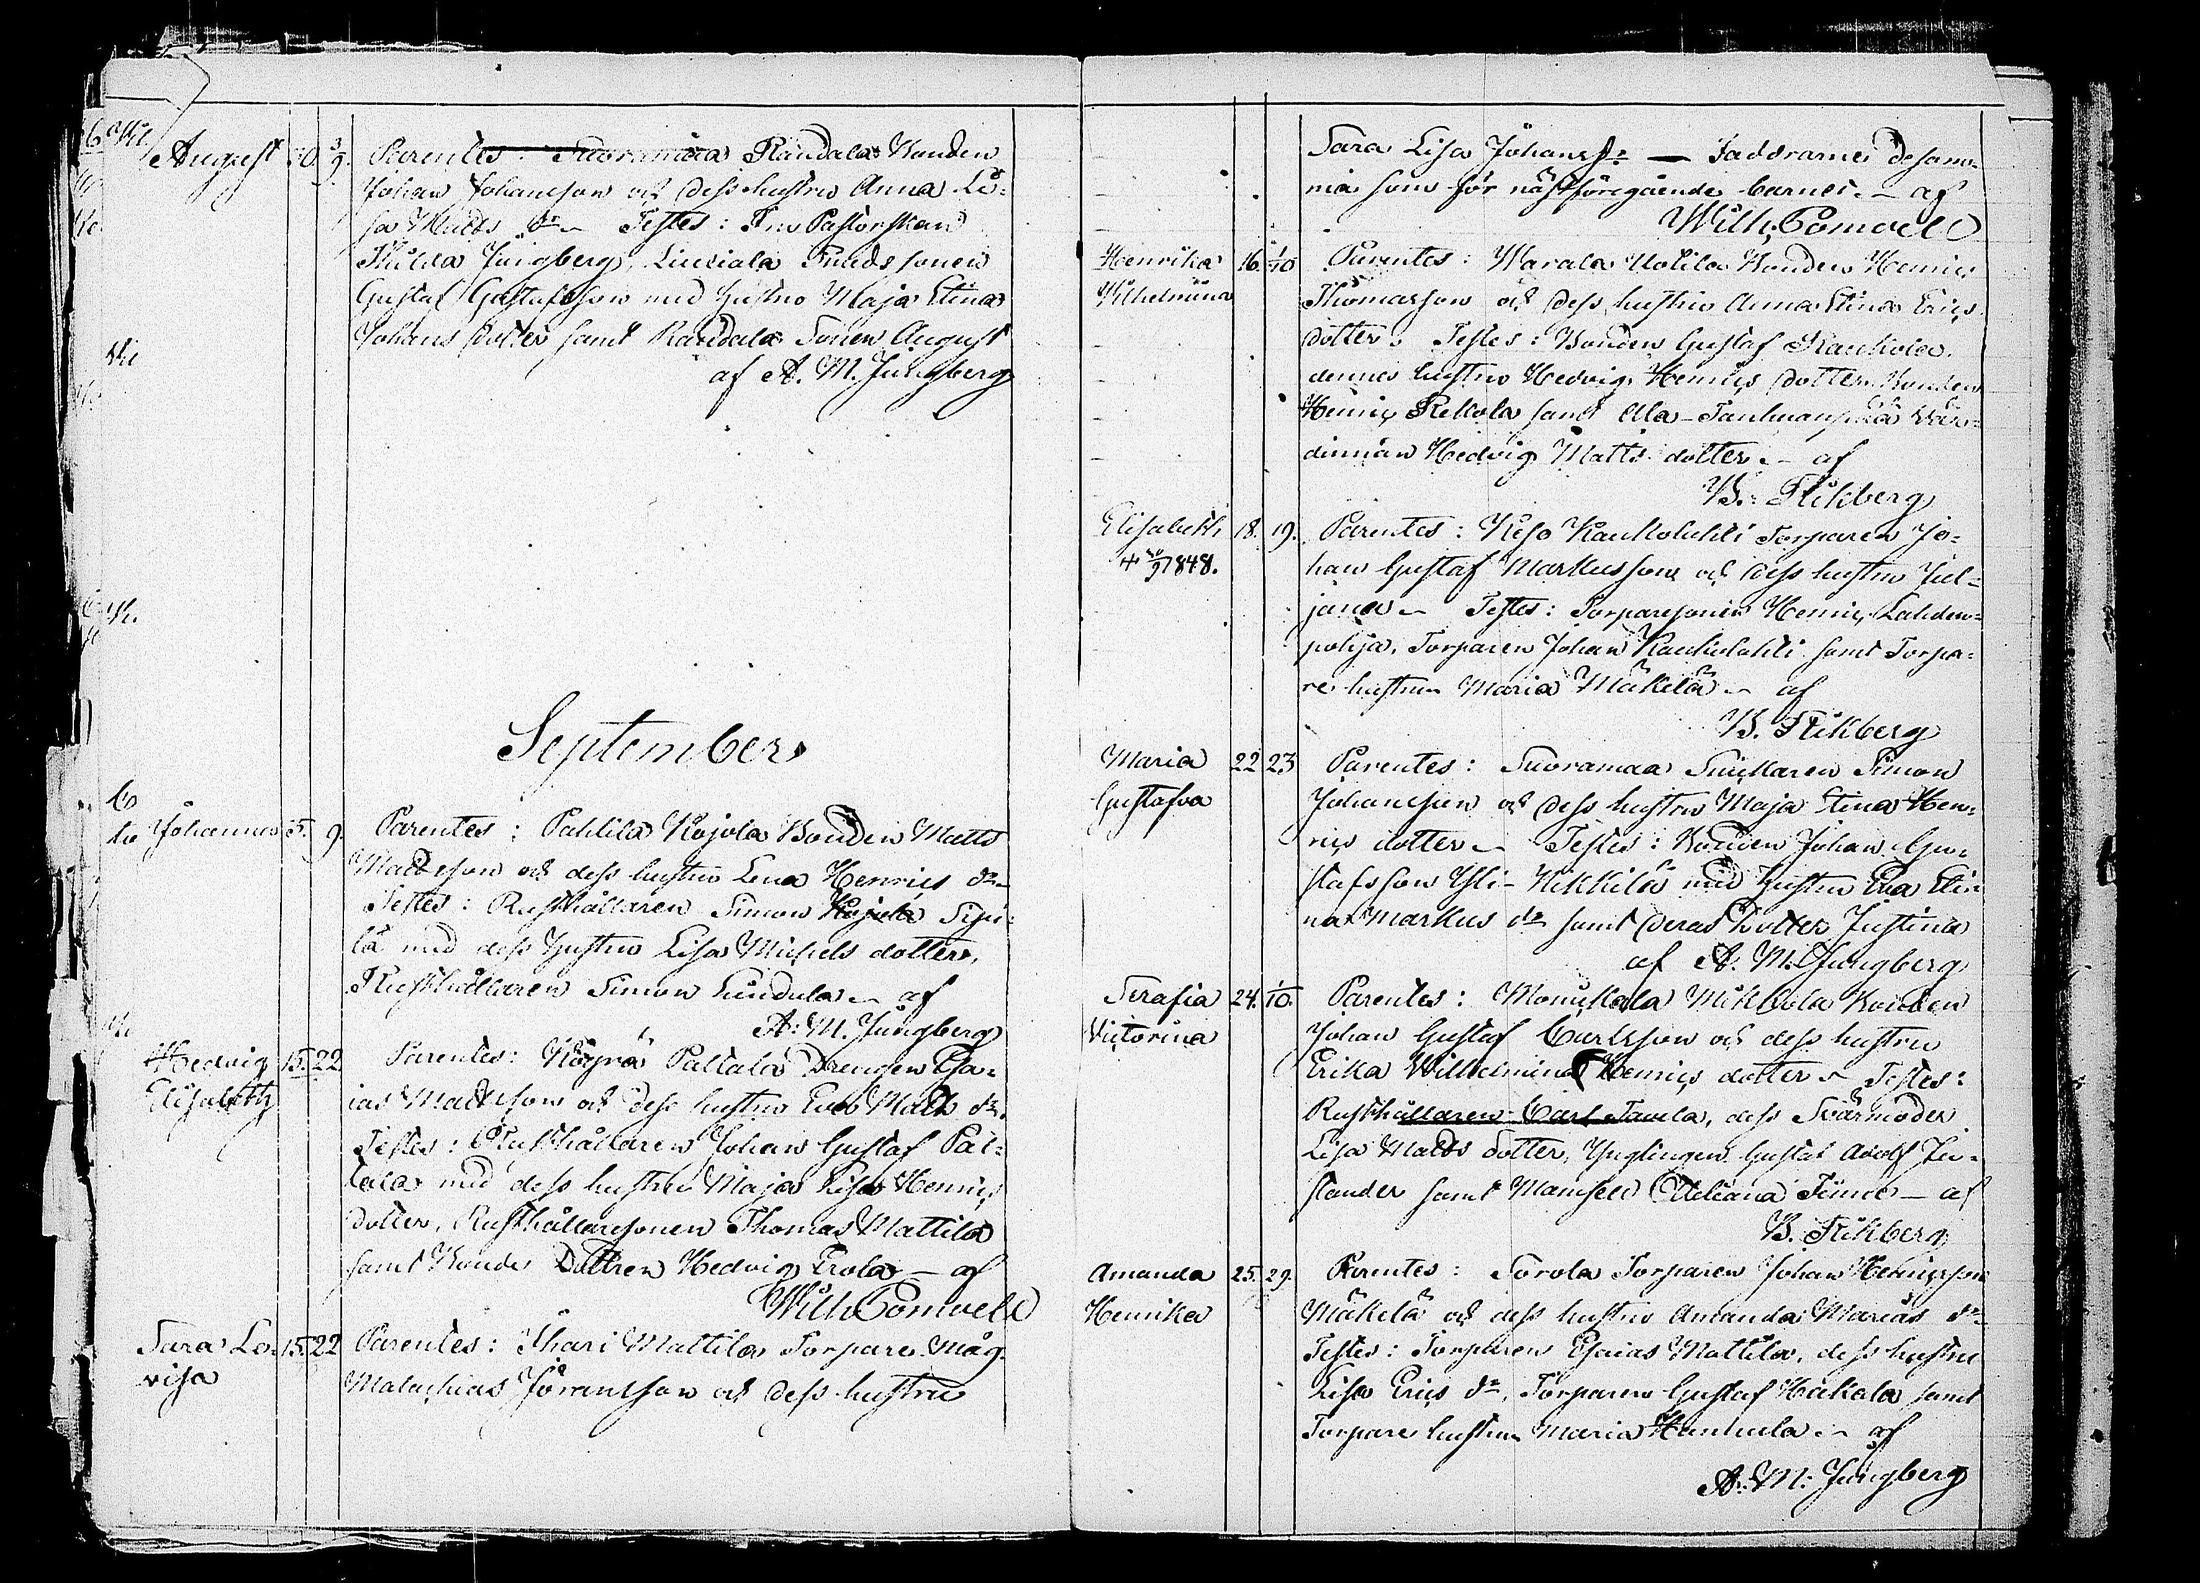 August 30. 3/9. Parentes: Suoramaa Randala Bonden
Johan Johansson och dess hustru Anna Li-
sa Matts dr – Testes: Fru Pastorskan
Hulda Jungberg, Liuviala Bondssonen
Gustaf Gustafsson med hustru Maja Stina
Johans dotter samt Randala Sonen August
af A. M. Jungberg
September
Johannes 5. 9. Parentes: Pahlila Kojola Bonden Matts
Mattsson och dess hustru Lena Henrics dr –
Testes: Rusthållaren Simon Kojola Sipi-
lä med dess hustru Lisa Michels dotter,
Rusthållaren Simon Lundula – af
A. M. Jungberg
Hedvig 15. 22. Parentes: Köyrä Paltala Drengen Esa-
Elisabeth ias Mattsson och dess hustru Eva Matts dr.
Testes: Rusthållaren Johan Gustaf Pal-
tala med dess hustru Maja Lisa Henrics
dotter, Rusthållaresonen Thomas Mattila
samt Bonde Dottren Hedvig Erola – af
Wilh. Pomvell
Sara Lo- 15. 22 Parentes: Ihari Mattila Torpare måg
visa Malachias Jöransson och dess hustru
Sara Lisa Johans dr — Faddrarne desam-
ma som för nästföregående barnet. – af
Wilh. Pomvell
Henrika 16. 1/10 Parentes: Warala Uotila Bonden Henric
Wilhelmina Thomasson och dess hustru Anna Stina Erics
dotter. Testes: Bonden Gustaf Kaukola,
dennes hustru Hedvig Henrics dotter, Bonden
Henric Rekola samt Ala-Tanhuanpää Vär-
dinnan Hedvig Matts dotter. – af
B. Flikberg
Elisabeth 18. 19. Parentes: Kiso Kaukolahti Torparen Jo-
1848. han Gustaf Markusson och dess hustru Jul-
jana – Testes: Torparesonen Henric Lahden-
pohja, Torparen Johan Kaukolahti samt Torpa-
re hustrun Maria Mäkelä – af
B. Flikberg
Maria 22 23 Parentes: Suoramaa Snickaren Simon
Gustafva Johansson och dess hustru Maja Stina Hen-
rics dotter – Testes: Bonden Johan Gu-
stafsson Yli-Nikkilä med hustru Eva Sti-
na Markus dr samt deras dotter Justina
af A. M. Jungberg
Serafia 24. 1/10. Parentes: Monickala Mikkola Bonden
Victorina Johan Gustaf Carlsson och dess hustru
Erika Wilhelmina Henrics dotter – Testes:
Rusthållaren Carl Tamla, dess Svärmoder
Lisa Matts dotter, Ynglingen Gustaf Adolf
samt Mamsell – af
B. Flikberg
Amanda 25. 29. Parentes: Sorola Torparen Johan Henricsson
Henrika Mäkelä och dess hustru Amanda Marias dr
Testes: Torparen Esaias Mattila, dess hustru
Lisa Erics dr, Torparen Gustaf Hakala samt
Torpare hustrun Maria Hanhula – af
A. M. Jungberg